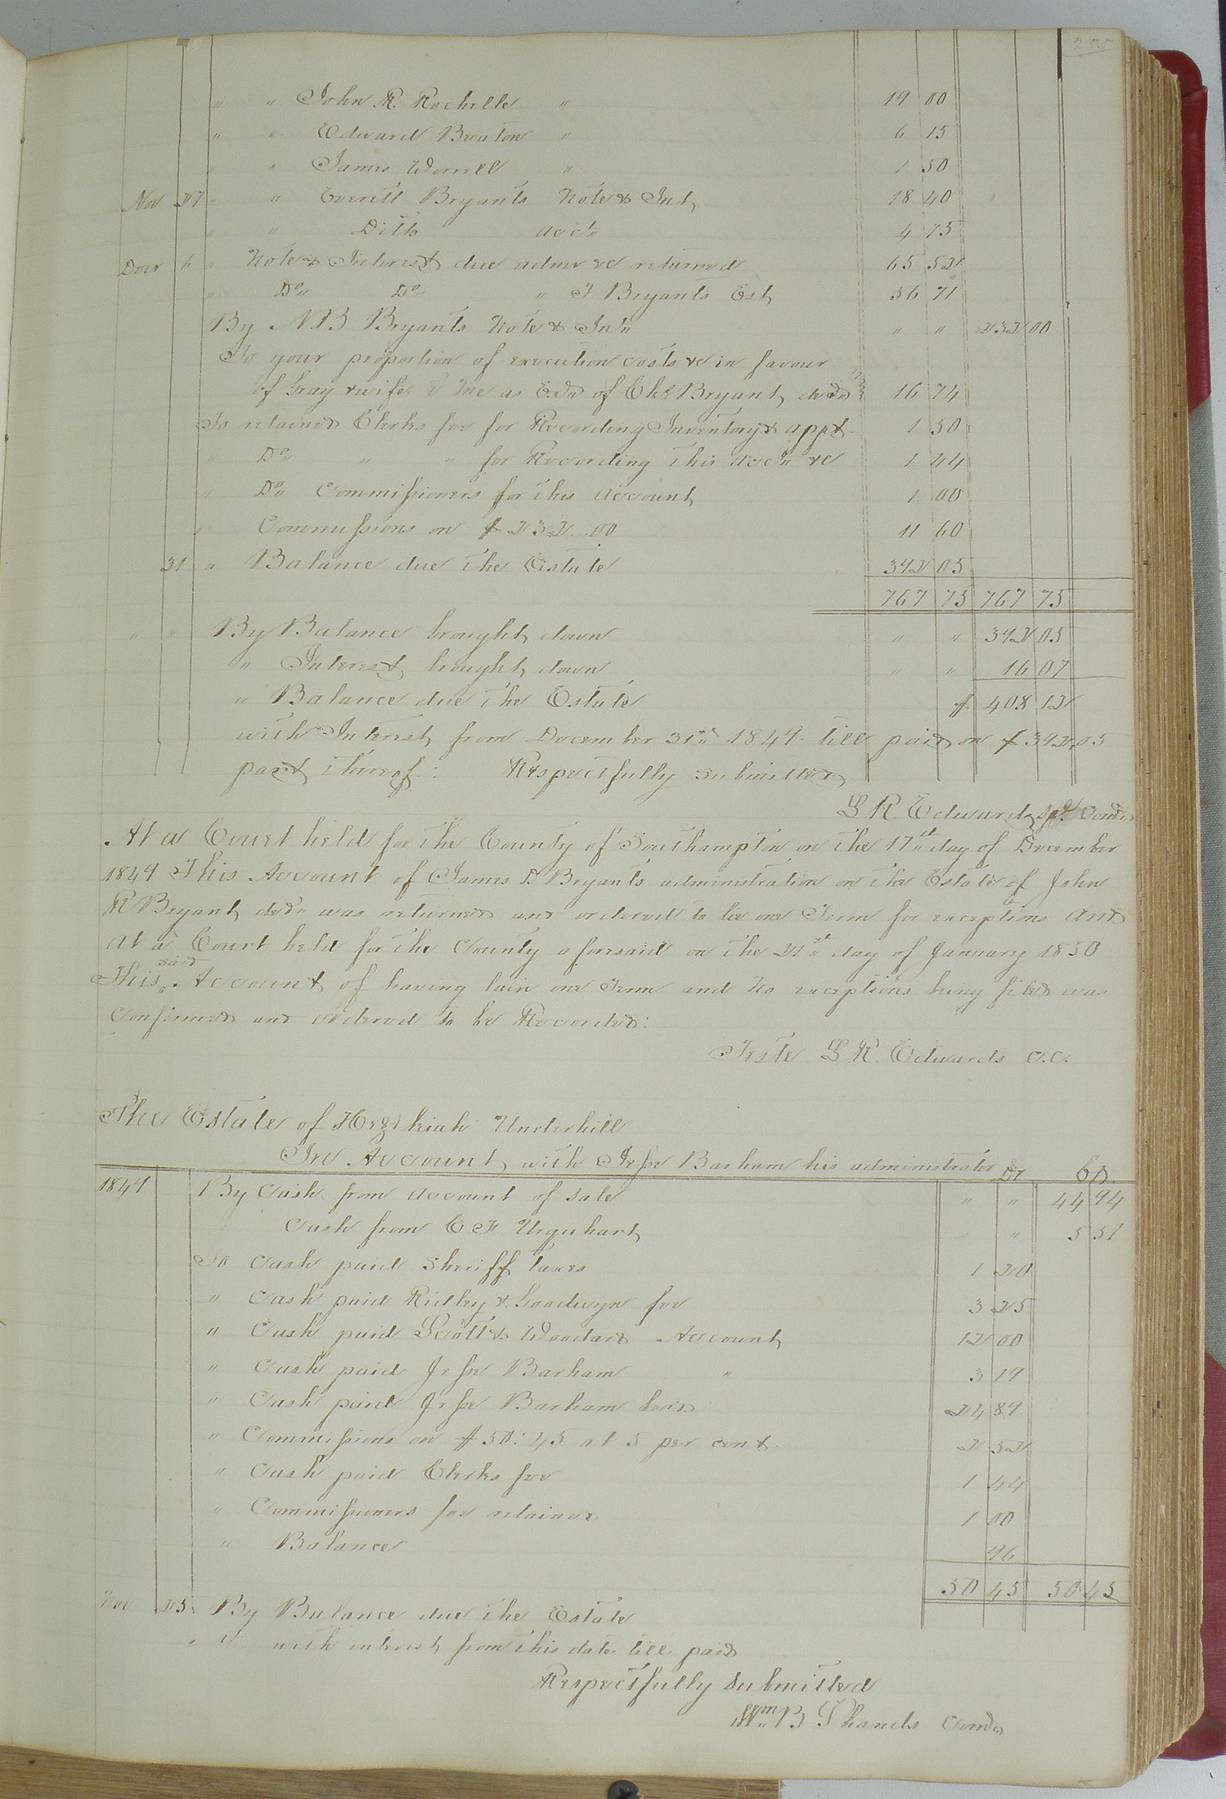 255
" " John R. Rochelle " 19 00
" " Edward Beaton " 6 15
" " James Worrell " 1 50
Nov 27 " " Everitt Bryants Note & Int, 18 40
" " Ditto acct 4 75
Decr 6 " Note & Interest due admr &c returned 65 52
" Do Do " J Bryants Est 56 71
By N.B Bryants Note & Int " " 232 00
To your proportion of execution costs &c in favour
of Gray & wife & me as Exr of Bryant, decd 16 74
To retained Clerks fee for Recording Inventory & appt 1 50
" Do " " for Recording This Acct &c 1 44
" Do Commissioners for this account 1 00
" Commissions on $232.00 11 60
31 " Balance due the Estate 392 05
767 75 767 75
" " By Balance brought down " " 392 05
" Interest brought down " " 16 07
" Balance due the Estate $ 408 12
with Interest from December 31st 1849 till paid on $392.05
part thereof: Respectfully submitted
L R Edwards, Comr
At a Court held for the County of Southampton on the 17th day of December
1849 This Account of James D Bryants administration on the Estate of John
R Bryant decd was returned and ordered to lie one Term for exceptions And
At a Court held for the County aforesaid on the 21st day of January 1850
This said Account of having lain one Term and No exceptions being filed was
Confirmed and ordered to be Recorded:
Teste L R. Edwards C.C.
The Estate of Hezekiah Underhill
In Account, with Jesse Barham his administrator Dr Cr.
1849 By Cash from account of sale " " 44 94
Cash from C F Urquhart, " " 5 51
To Cash paid Sheriff taxes 1 20
" Cash paid Ridley & Goodwyn fee 3 25
" Cash paid Scott & Woodard Account, 12 00
" Cash paid Jesse Barham " 3 19
" Cash paid Jesse Barham 24 89
" Commissions on $50:45 at 5 per cent. 2 52
" Cash paid Clerks fee 1 44
" Commissioners fee retained 1 00
" Balance 96
50 45 50 45
25 By Balance due the Estate
" " with interest from this date till paid
Respectfully Submitted
Wm B Shands Comr